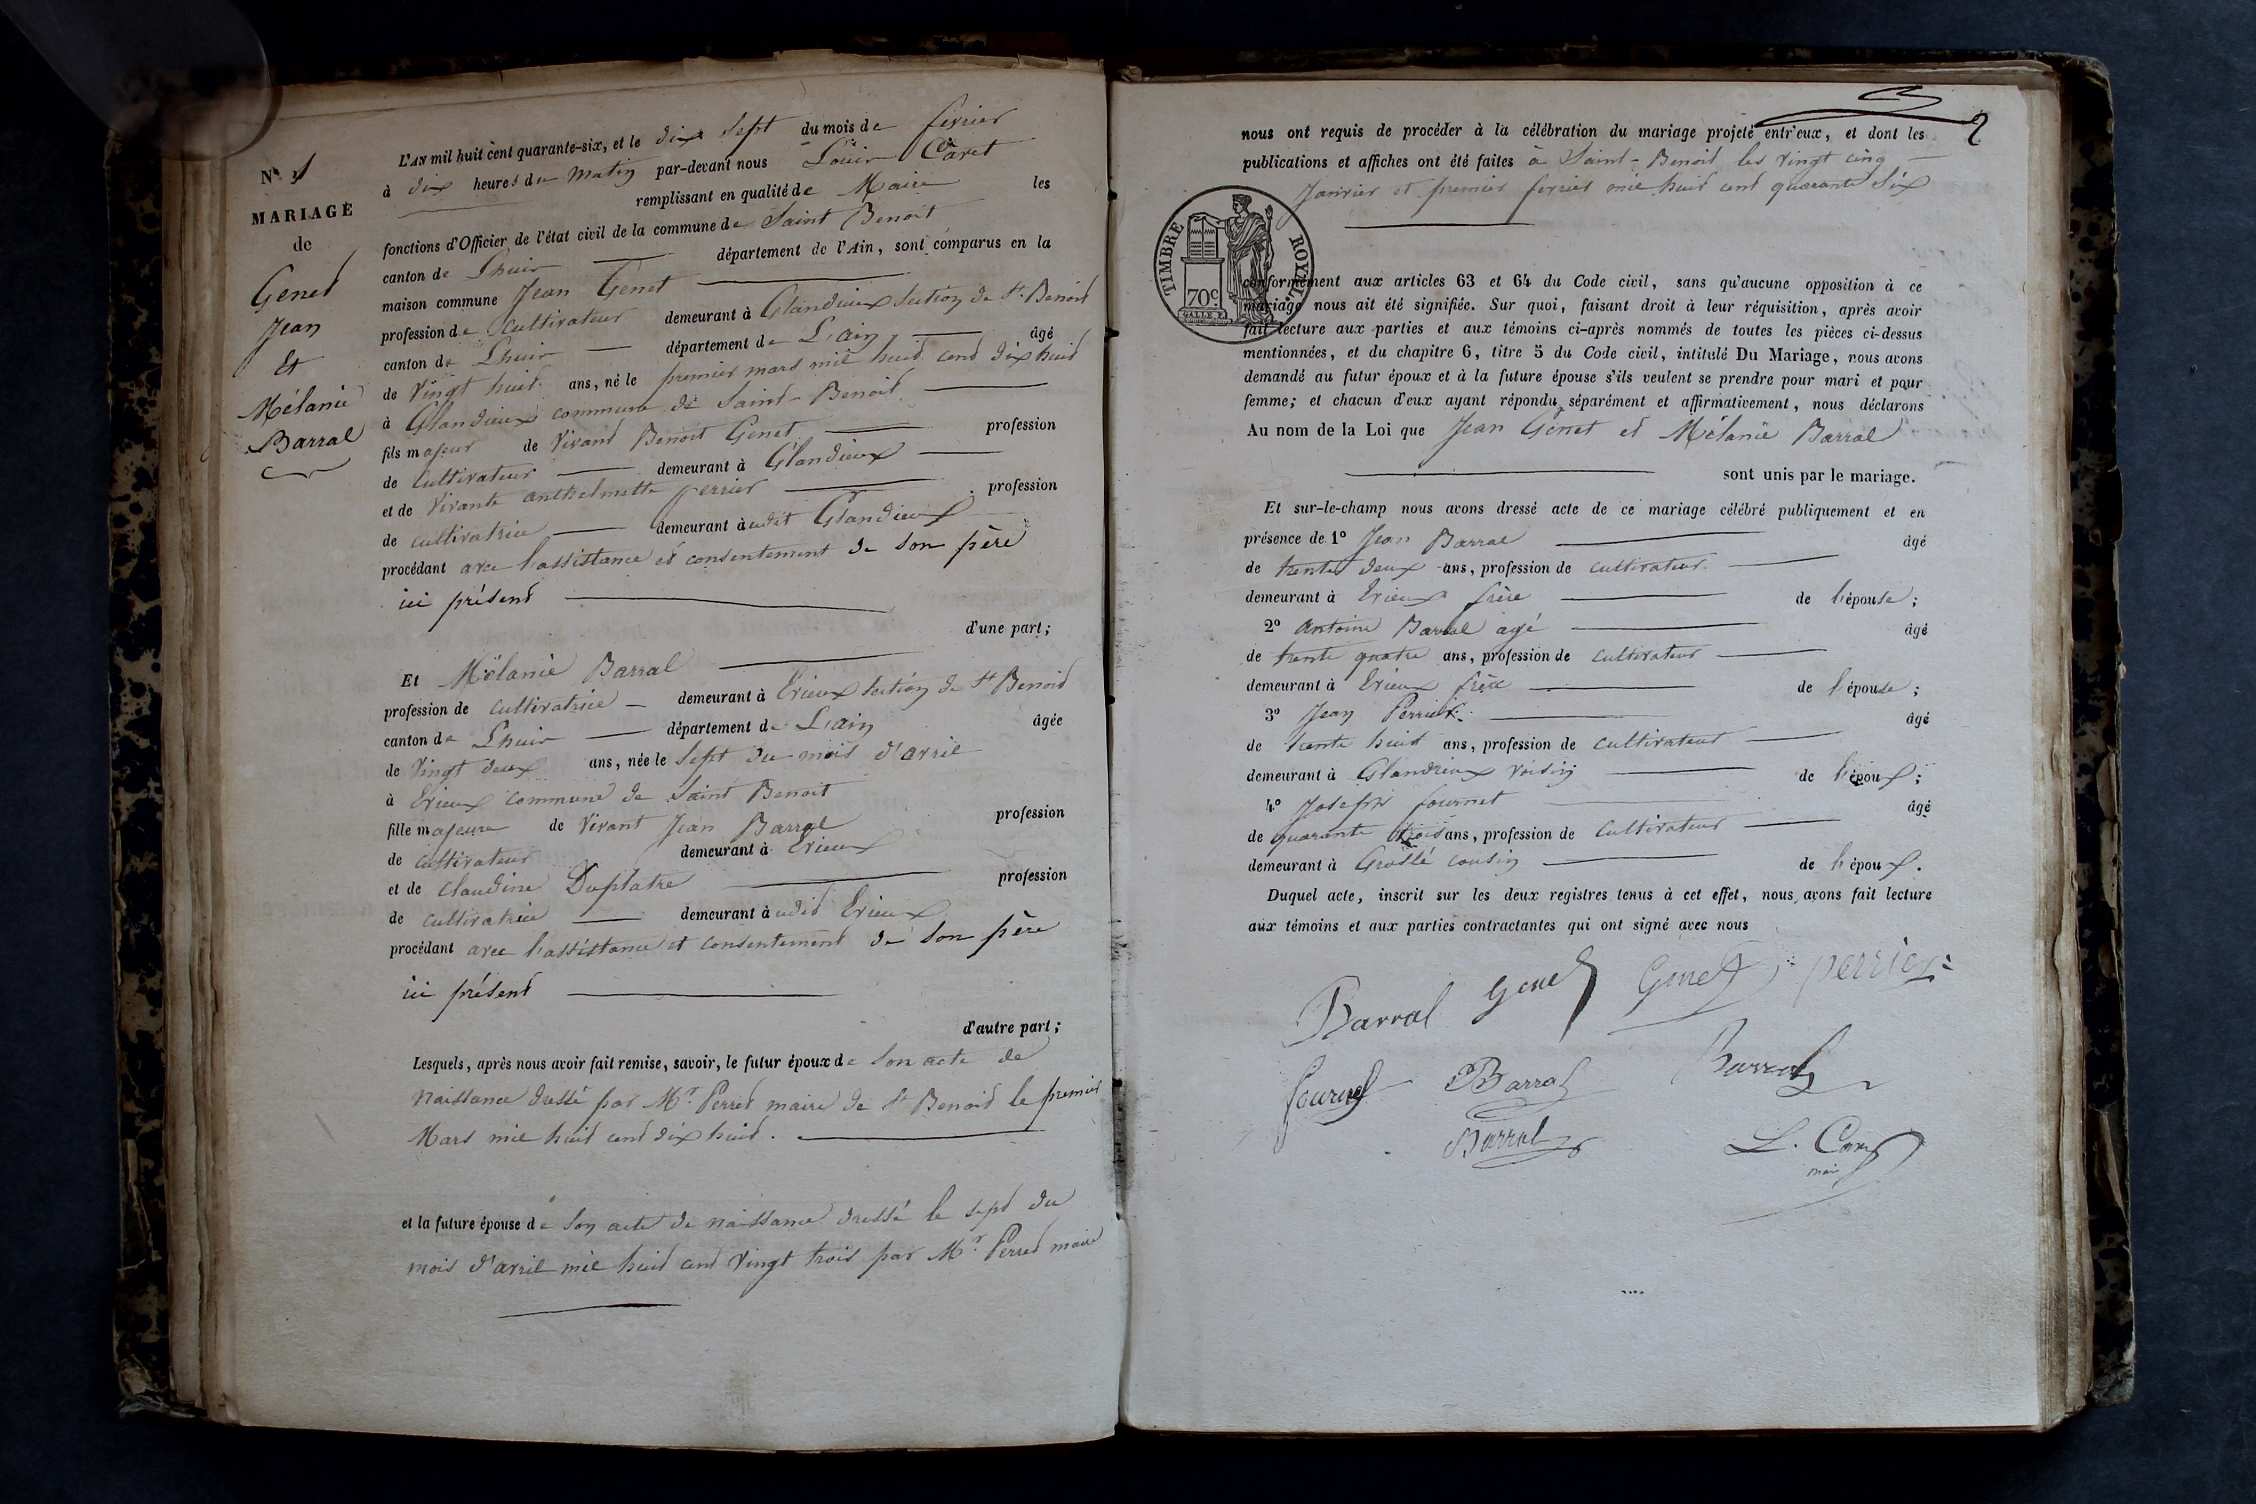 N° 1
MARIAGE
de
Genet
Jean
Et
Mélanie
Barral
L'AN mil huit cent quarante-six, et le dix sept du mois de fevrier
à dix heures du matin par-devant nous Louis Caret
remplissant en qualité de Maire les
fonctions d'Officier de l'état civil de la commune de Saint Benoit
canton de Lhuis département de l'Ain, sont comparus en la
maison commune Jean Genet
profession de cultivateur demeurant à Glandieux section de St Benoit
canton de Lhuis département de L'ain âgé
de vingt huit ans, né le premier mars mil huit cent dix huit
à Glandieux commune de Saint-Benoit
fils majeur de vivant Benoit Genet profession
de cultivateur demeurant à Glandieux
et de vivante anthelmette perrier profession
de cultivatrice demeurant à udit Glandieux
procédant avec l'assistance et consentement de son père
ici présent
d'une part;
Et Mélanie Barral
profession de cultivatrice demeurant à Erieux section de St Benoit
canton de Lhuis département de L'ain âgée
de vingt deux ans, née le sept du mois d'avril
à Erieux commune de Saint Benoit
fille majeure de vivant Jean Barral profession
de cultivateur demeurant à Erieux
et de claudine Duplatre profession
de cultivatrice demeurant à udit Erieux
procédant avec l'assistance et consentement de son père
ici présent
d'autre part;
Lesquels, après nous avoir fait remise, savoir, le futur époux de son acte de
naissance dressé par Mr Perret maire de St Benoit le premier
Mars mil huit cent dix huit.
et la future épouse de son acte de naissance dressé le sept du
mois d'avril mil huit cent vingt trois par Mr Perret maire
2
nous ont requis de procéder à la célébration du mariage projeté entr'eux, et dont les
publications et affiches ont été faites à Saint-Benoit les vingt cinq
Janvier et premier fevrier mil huit cent quarante six
TIMBRE ROYAL
70c.
conformément aux articles 63 et 64 du Code civil, sans qu'aucune opposition à ce
mariage nous ait été signifiée. Sur quoi, faisant droit à leur réquisition, après avoir
fait lecture aux parties et aux témoins ci-après nommés de toutes les pièces ci-dessus
mentionnées, et du chapitre 6, titre 5 du Code civil, intitulé Du Mariage, nous avons
demandé au futur époux et à la future épouse s'ils veulent se prendre pour mari et pour
femme; et chacun d'eux ayant répondu séparément et affirmativement, nous déclarons
Au nom de la Loi que Jean Genet et Mélanie Barral
sont unis par le mariage.
Et sur-le-champ nous avons dressé acte de ce mariage célébré publiquement et en
présence de 1° Jean Barral âgé
de trente deux ans, profession de cultivateur
demeurant à Erieux frère de l'épouse;
2° antoine Barral agé âgé
de trente quatre ans, profession de cultivateur
demeurant à Erieux frère de l'épouse;
3° Jean Perrier âgé
de trente huit ans, profession de cultivateur
demeurant à Glandieux voisin de l'époux;
4° Joseph fournet âgé
de quarante trois ans, profession de cultivateur
demeurant à Groslé cousin de l'époux.
Duquel acte, inscrit sur les deux registres tenus à cet effet, nous avons fait lecture
aux témoins et aux parties contractantes qui ont signé avec nous
Barral Genet Genet perrier
fournet Barral Barral
Barral L. Caret